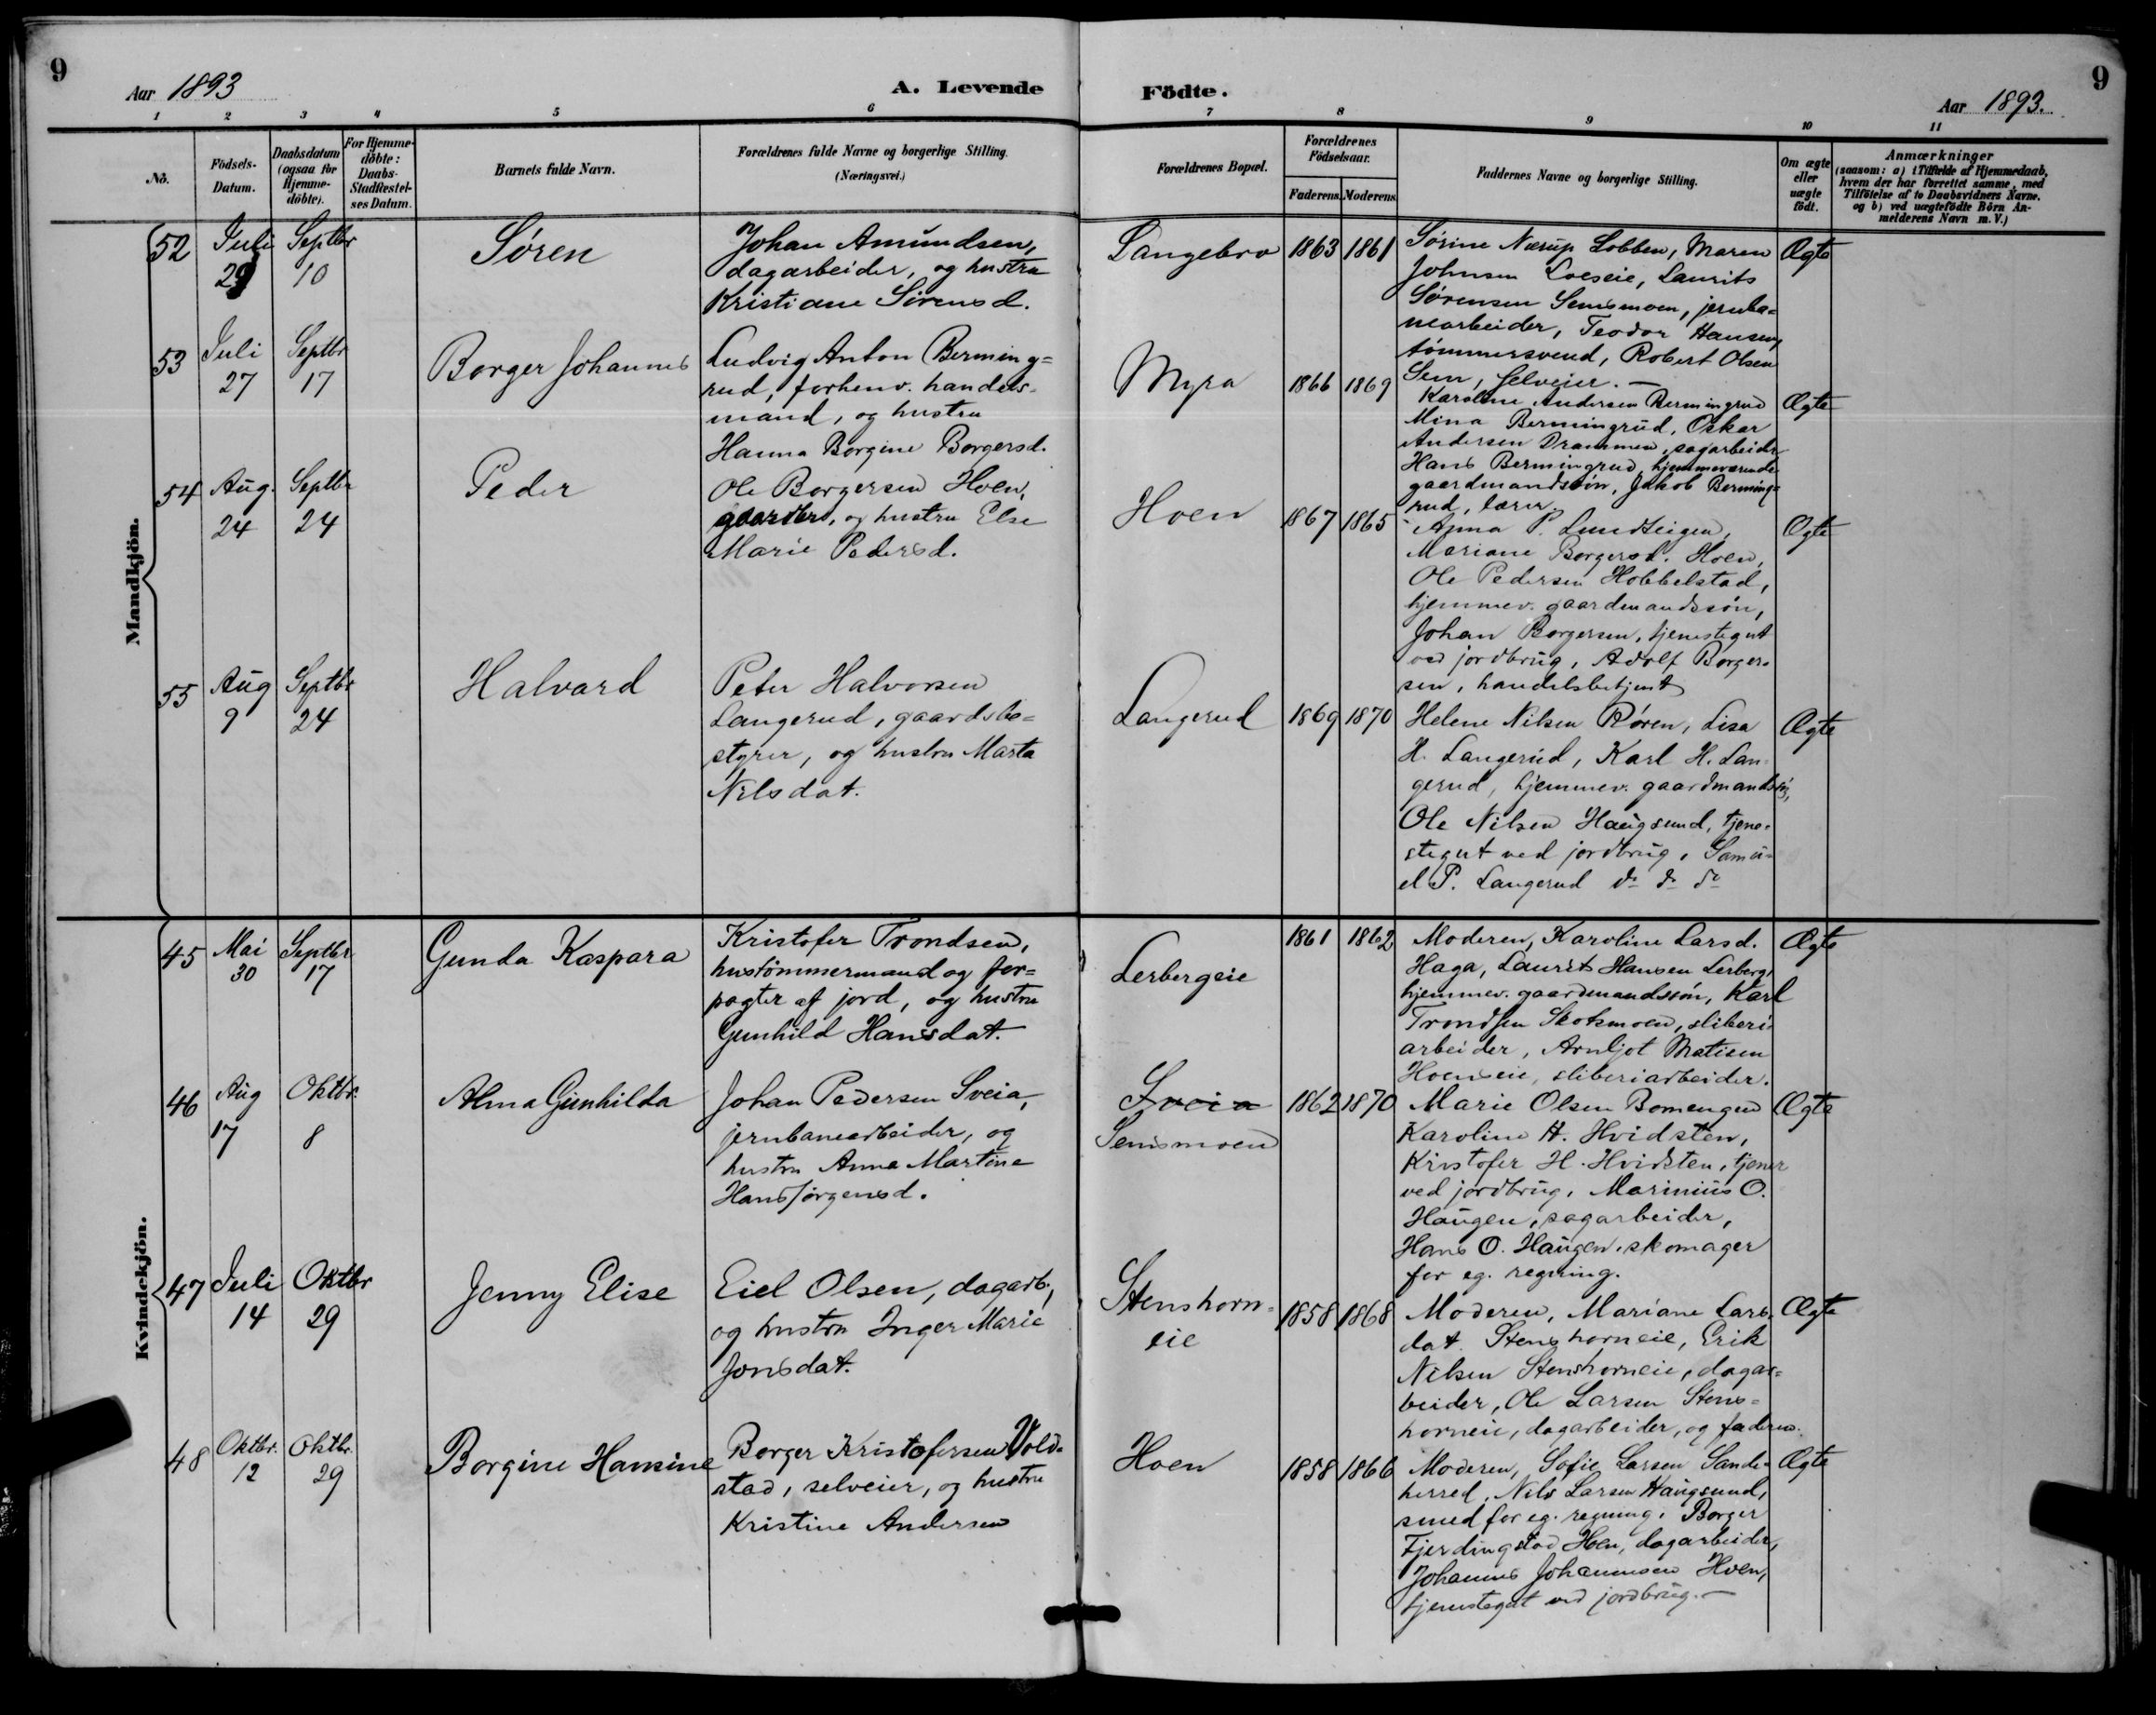 9
Aar 1893
A. Levende Födte.
Aar 1893.
9
1 2 3 4 5 6 7 8 9 10 11
No.
Födsels-
Datum.
Daabsdatum
(ogsaa for
Hjemme-
döbte).
For Hjemme-
döbte:
Daabs-
Stadfæstel-
ses Datum.
Barnets fulde Navn.
Forældrenes fulde Navne og borgerlige Stilling.
(Næringsvei.)
Forældrenes Bopæl.
Forældrenes
Födselsaar.
Faderens. Moderens.
Faddernes Navne og borgerlige Stilling.
Om ægte
eller
uægte
födt.
Anmærkninger
(saasom: a) i Tilfælde af Hjemmedaab,
hvem der har forrettet samme, med
Tilföielse af to Daabsvidners Navne.
og b) ved uægtefödte Börn An-
melderens Navn m. V.)
Mandkjön.
52
Juli
29
Septbr
10
Søren
Johan Amundsen,
dagarbeider, og hustru
Kristiane Sørensd.
Langebro
1863 1861
Sørine Nærup Lobben, Maren
Johnsen Loeseie, Laurits
Sørensen Semsmoen, jernba=
nearbeider, Teodor Hansen,
tømmersvend, Robert Olsen
Sem, selveier. —
Ægte
53
Juli
27
Septbr
17
Borger Johannes
Ludvig Anton Berming=
rud, forhenv. handels-
mand, og hustru
Hanna Borgine Borgersd.
Myra
1866 1869
Karoline Andersen Bermingrud
Mina Bermingrud, Oskar
Andersen Drammen, sagarbeider
Hans Bermingrud, hjemmeværende
gaardmandssøn, Jakob Berming=
rud, lærer
Ægte
54
Aug.
24
Septbr
24
Peder
Ole Borgersen Hoen,
gaardbr., og hustru Else
Marie Pedersd.
Hoen
1867 1865
Anna P. Lundteigen,
Mariane Borgersd. Hoen,
Ole Pedersen Hobbelstad,
hjemmev. gaardmandssøn,
Johan Borgersen, tjenestegut
ved jordbrug, Adolf Borger-
sen, handelsbetjent
Ægte
55
Aug
9
Septbr
24
Halvard
Peter Halvorsen
Langerud, gaardsbe=
styrer, og hustru Marta
Nilsdat.
Langerud
1869 1870
Helene Nilsen Røren, Lisa
H. Langerud, Karl H. Lan-
gerud, hjemmev. gaardmandssøn,
Ole Nilsen Haugsund, tjene-
stegut ved jordbrug, Samu-
el P. Langerud do do do
Ægte
Kvindekjön.
45
Mai
30
Septbr
17
Gunda Kaspara
Kristofer Trondsen,
hustømmermand og for=
pagter af jord, og hustru
Gunhild Hansdat.
Lerbergeie
1861 1862
Moderen, Karoline Larsd.
Haga, Laurits Hansen Lerberg,
hjemmev. gaardmandssøn, Karl
Trondsen Skotsmoen, sliberi-
arbeider, Arnljot Matisen
Hoenseie, sliberiarbeider.
Ægte
46
Aug
17
Oktbr.
8
Alma Gunhilda
Johan Pedersen Sveia,
jernbanearbeider, og
hustru Anna Martine
Hansjørgensd.
Sveia
Semsmoen
1862 1870
Marie Olsen Bomengen
Karoline H. Hvidsten,
Kristofer H. Hvidsten, tjener
ved jordbrug, Marinius O.
Haugen, sagarbeider,
Hans O. Haugen, skomager
for eg. regning.
Ægte
47
Juli
14
Oktbr
29
Jenny Elise
Eiel Olsen, dagarb.,
og hustru Inger Marie
Jonsdat.
Stenshorn-
eie
1858 1868
Moderen, Mariane Lars-
dat. Stenshorneie, Erik
Nilsen Stenshorneie, dagar=
beider, Ole Larsen Stens-
horneie, dagarbeider, og faderen.
Ægte
48
Oktbr.
12
Oktbr.
29
Borgine Hansine
Borger Kristofersen Vold-
stad, selveier, og hustru
Kristine Andersen
Hoen
1858 1866
Moderen, Sofie Larsen Sande-
herred, Nils Larsen Haugsund,
smed for eg. regning, Borger
Fjerdingstad Hoen, dagarbeider,
Johannes Johannesen Hoen,
tjenestegut ved jordbrug. —
Ægte